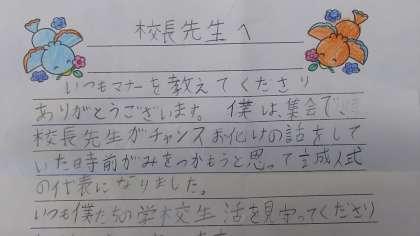 校長先生へ
いつもマナーを教えてくださり
ありがとうございます。僕は、集会で、
校長先生がチャンスお化けの話をして
いた時前がみをつかもうと思って立成人式
の代表になりました。
いつも僕たちの学校生活を見守ってくださり